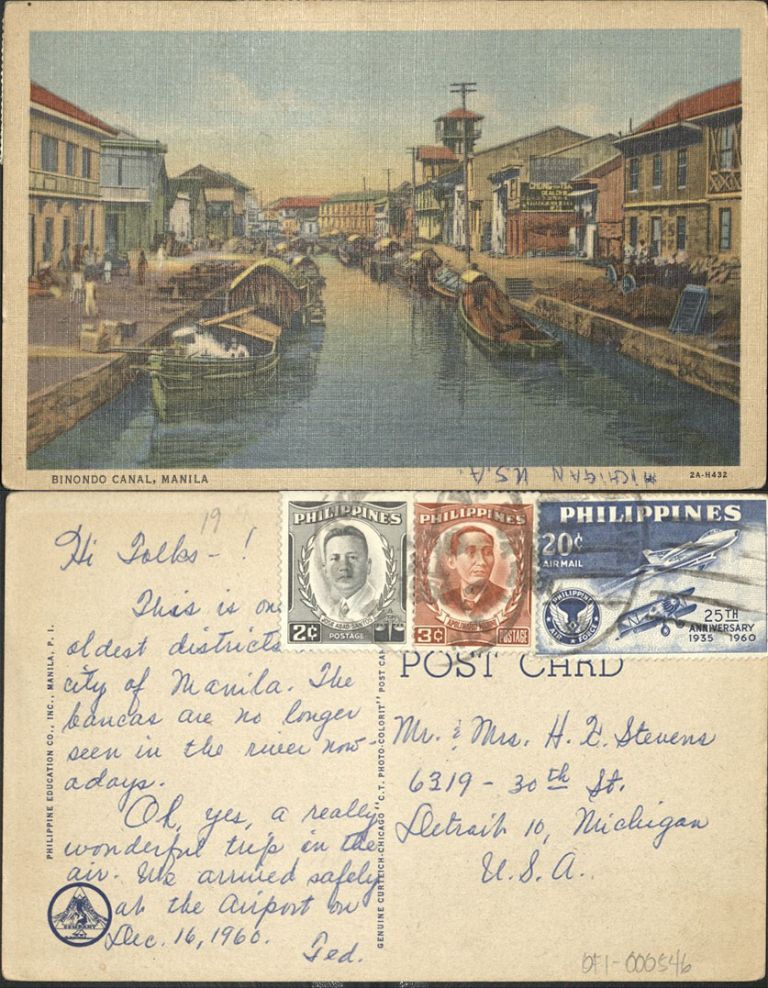 BINONDO CANAL, MANILA
MICHIGAN U.S.A.
2A-H432
19
Hi Folks - !
This is one
oldest districts
city of Manila. The
bancas are no longer
seen in the river now-
adays.
Oh, yes, a really
wonderful trip in the
air. We arrived safely
at the Airport on
Dec. 16, 1960.
Ted.
PHILIPPINE EDUCATION CO., INC., MANILA, P. I.
COMPANY
GENUINE CURTEICH-CHICAGO "C.T. PHOTO-COLORIT" POST CAR
PHILIPPINES
JOSE ABAD SANTOS
2¢ POSTAGE
PHILIPPINES
APOLINARIO MABINI
3¢ POSTAGE
PHILIPPINES
20¢
AIR MAIL
PHILIPPINE
AIR FORCE
25TH
ANNIVERSARY
1935 1960
POST CARD
Mr. & Mrs. H. F. Stevens
6319 - 30th St.
Detroit 10, Michigan
U.S.A.
OFI-000546